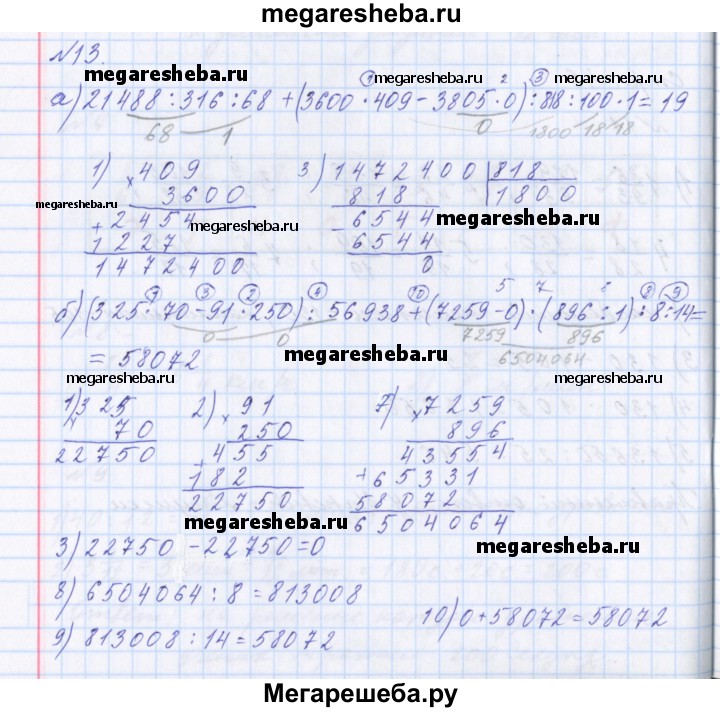 megaresheba.ru
№13.
megaresheba.ru megaresheba.ru megaresheba.ru
1 2 3
а) 21488:316:68+(3600·409-3805·0):818:100·1=19
68 1 0 1800 18 18
1) × 409 3) 1472400 818
3600 818 1800
megaresheba.ru + 2454 megaresheba.ru - 6544 megaresheba.ru
1227 6544
1472400 0
1 3 2 4 10 5 7 6 8 9
б) (325·70-91·250):56938+(7259-0)·(896:1):8:14=
0 0 7259 896
6504064
= 58072
megaresheba.ru megaresheba.ru megaresheba.ru
1) × 325 2) × 91 7) × 7259
70 250 896
22750 + 455 43554
182 + 65331
22750 58072
megaresheba.ru 6504064
3) 22750-22750=0
megaresheba.ru
8) 6504064:8=813008
10) 0+58072=58072
9) 813008:14=58072
megaresheba.ru megaresheba.ru
Мегарешеба.ру